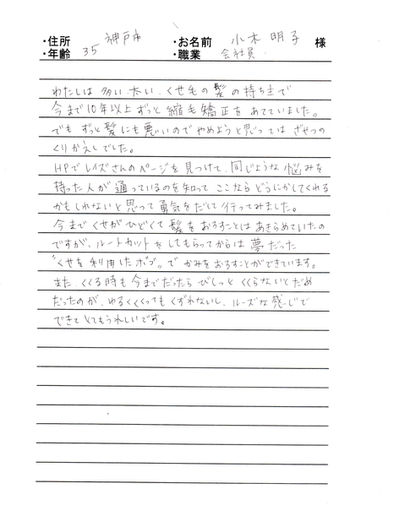 ・住所 神戸市 ・お名前 小木 明子 様
・年齢 35 ・職業 会社員
わたしは 多い、太い、くせ毛の 髪 の 持ち主で
今まで10年以上ずっと 縮毛矯正を あてていました。
でも ずっと髪にも悪いのでやめようと思っては
くりかえしでした。
HPでレイズさんのページを見つけて、同じような悩みを
持った人が 通っているのを知って ここなら どうにかしてくれる
かもしれないと思って勇気をだして行ってみました。
今まで くせがひどくて 髪をおろすことは あきらめていたの
ですが、ルートカットを してもらってからは 夢だった
"くせを利用したボブ"で かみをおろすことができています。
また くくる時も 今までだったら びしっと くくらないとだめ
だったのが、ゆるくくくっても くずれないし、ルーズな感じで
できて とてもうれしいです。